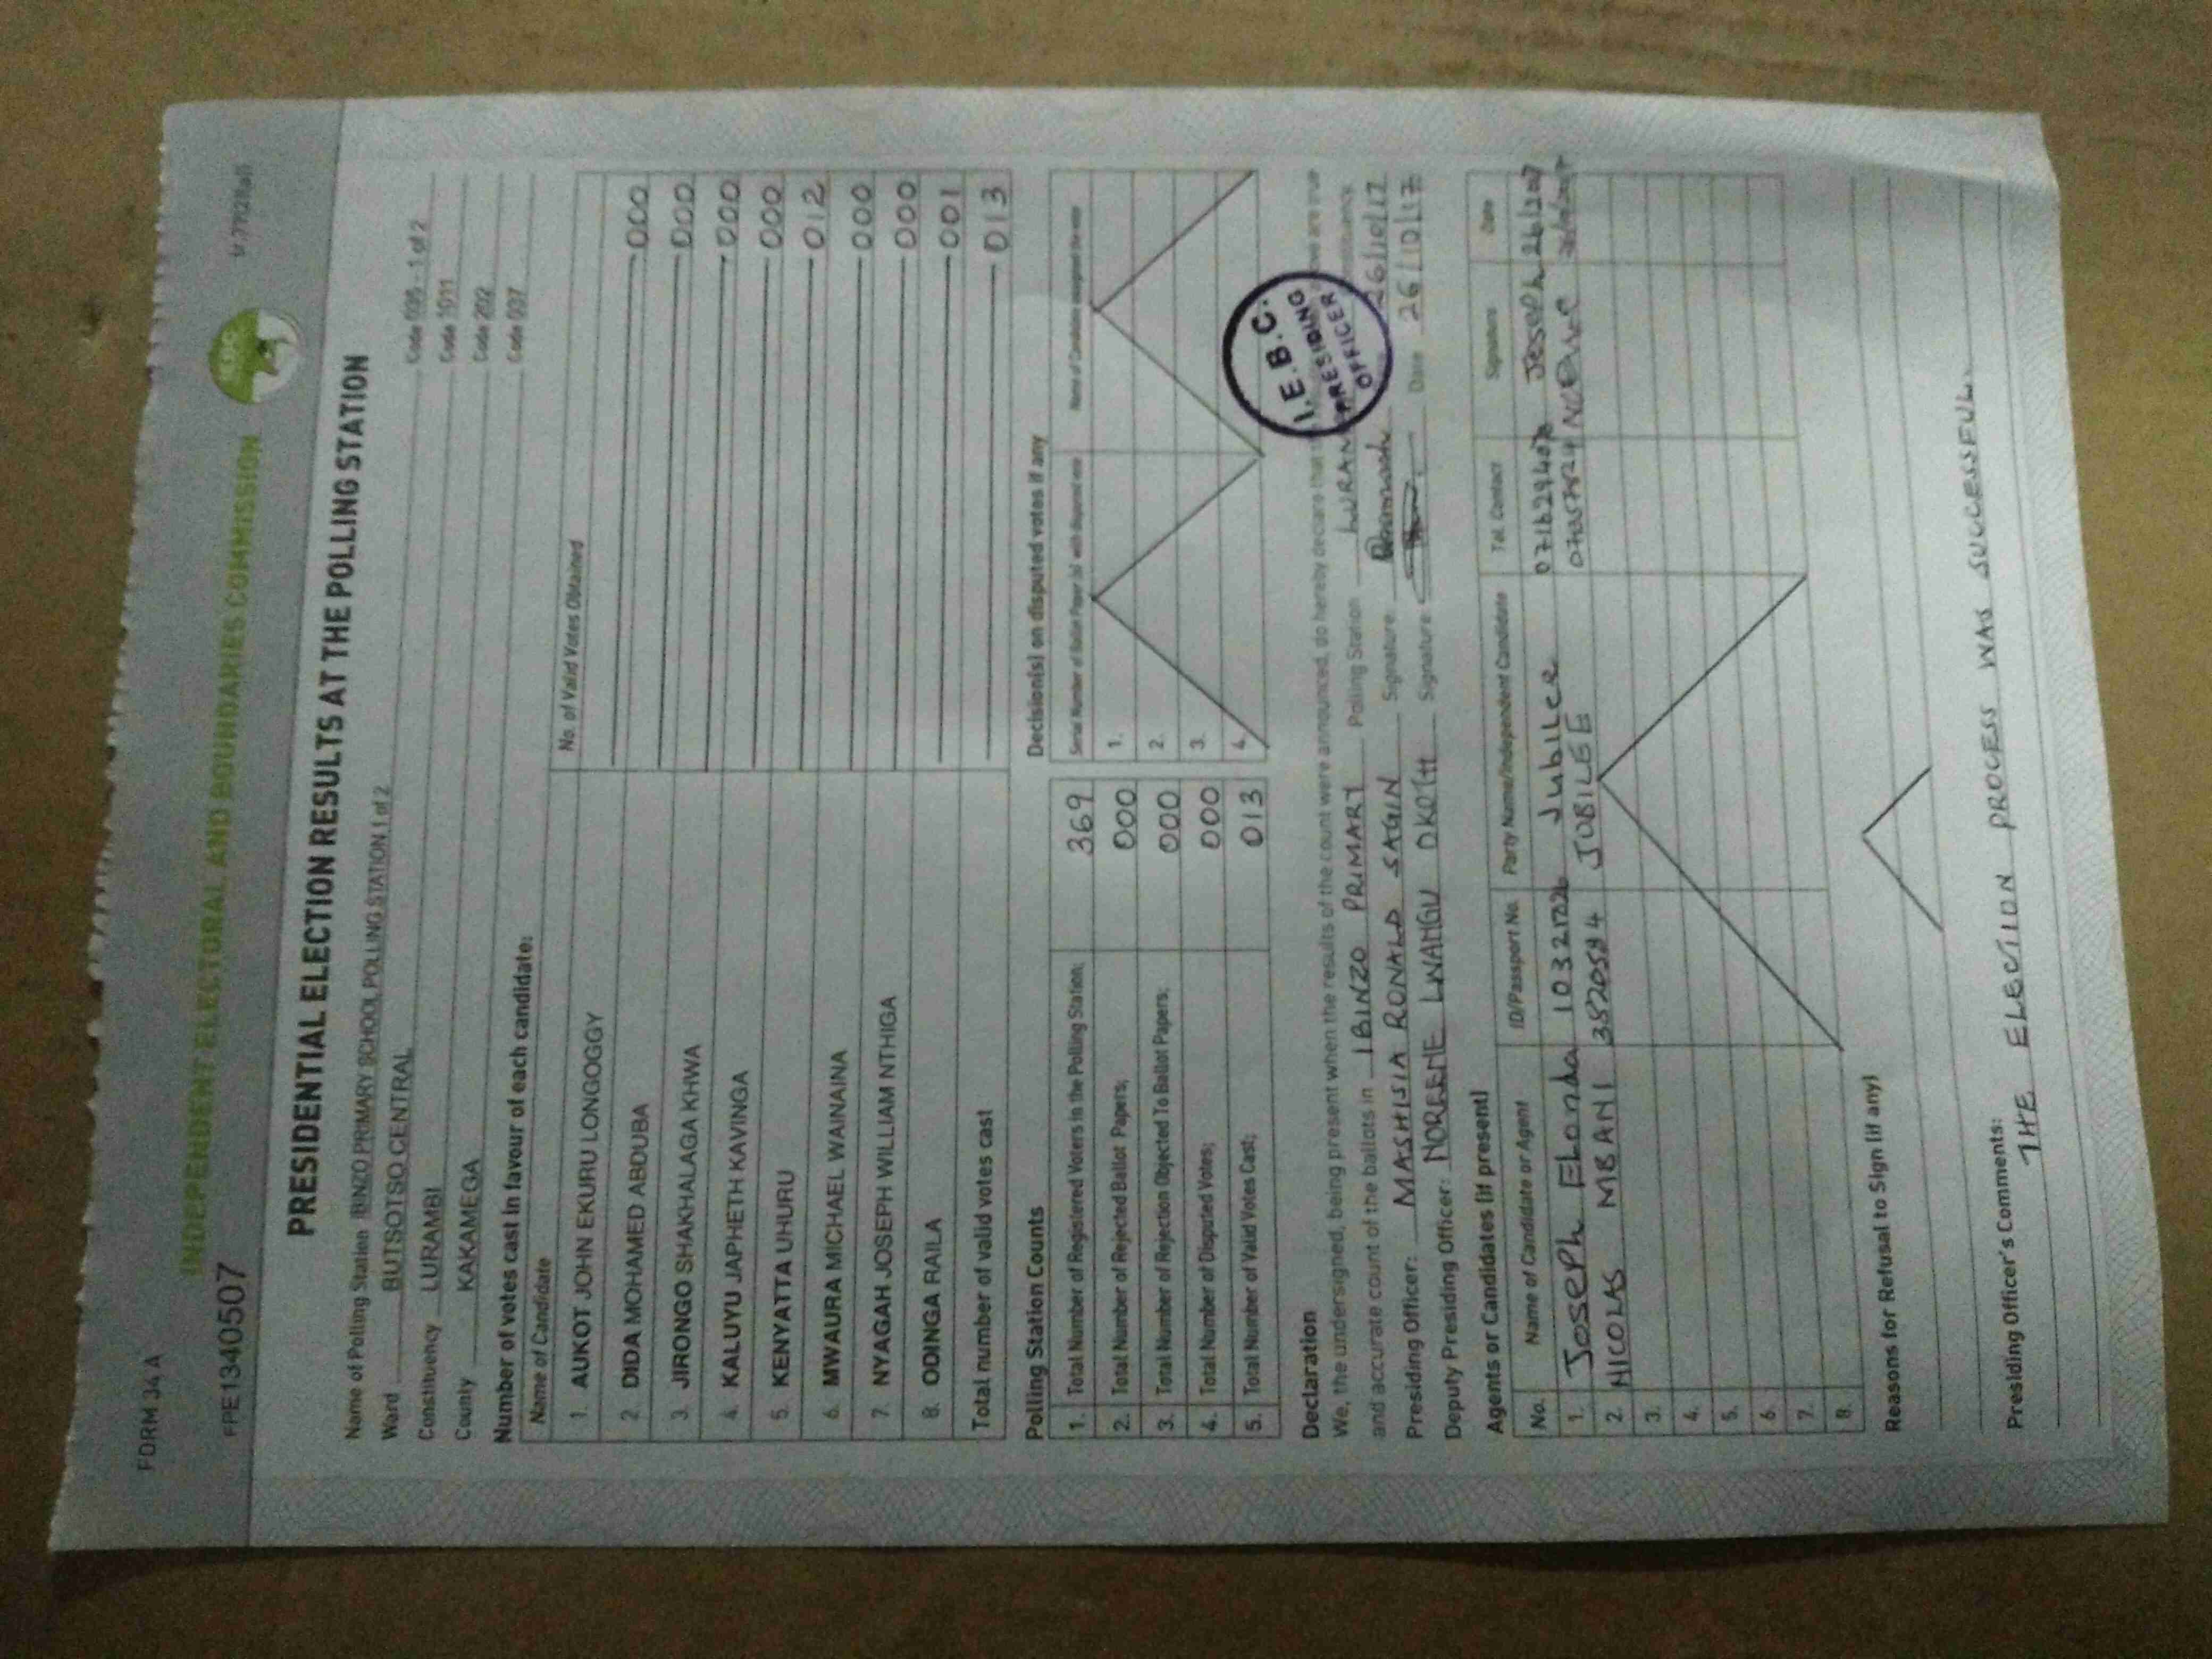 FORM 34A
INDEPENDENT ELECTORAL AND BOUNDARIES COMMISSION
FPE1340507
PRESIDENTIAL ELECTION RESULTS AT THE POLLING STATION
Name of Polling Station IBINZO PRIMARY SCHOOL POLLING STATION 1 of 2 Code 095 - 1 of 2
Ward BUTSOTSO CENTRAL Code 1011
Constituency LURAMBI Code 202
County KAKAMEGA Code 037
Number of votes cast in favour of each candidate:
Name of Candidate No. of Valid Votes Obtained
1. AUKOT JOHN EKURU LONGOGGY 000
2. DIDA MOHAMED ABDUBA 000
3. JIRONGO SHAKHALAGA KHWA 000
4. KALUYU JAPHETH KAVINGA 000
5. KENYATTA UHURU 012
6. MWAURA MICHAEL WAINAINA 000
7. NYAGAH JOSEPH WILLIAM NTHIGA 000
8. ODINGA RAILA 001
Total number of valid votes cast 013
Polling Station Counts Decision(s) on disputed votes if any
1. Total Number of Registered Voters in the Polling Station; 369 Serial Number of Ballot Paper (s) with disputed vote Name of Candidate assigned the vote
2. Total Number of Rejected Ballot Papers; 000 1.
3. Total Number of Rejection Objected To Ballot Papers; 000 2.
4. Total Number of Disputed Votes; 000 3.
5. Total Number of Valid Votes Cast; 013 4.
Declaration
We, the undersigned, being present when the results of the count were announced, do hereby declare that are true
and accurate count of the ballots in IBINZO PRIMARY Polling Station LURAM constituency.
Presiding Officer: MASHISIA RONALD SAGIN Signature 26/10/17
Deputy Presiding Officer: NOREENE LWANGU OKOTH Signature Date 26/10/17
I.E.B.C.
PRESIDING
OFFICER
Agents or Candidates (if present)
No. Name of Candidate or Agent ID/Passport No. Party Name/Independent Candidate Tel. Contact Signature Date
1. Joseph Elonda Jubilee Joseph
2. NICOLAS MBANI JUBILEE
3.
4.
5.
6.
7.
8.
Reasons for Refusal to Sign (if any)
Presiding Officer's Comments:
THE ELECTION PROCESS WAS SUCCESSFUL.